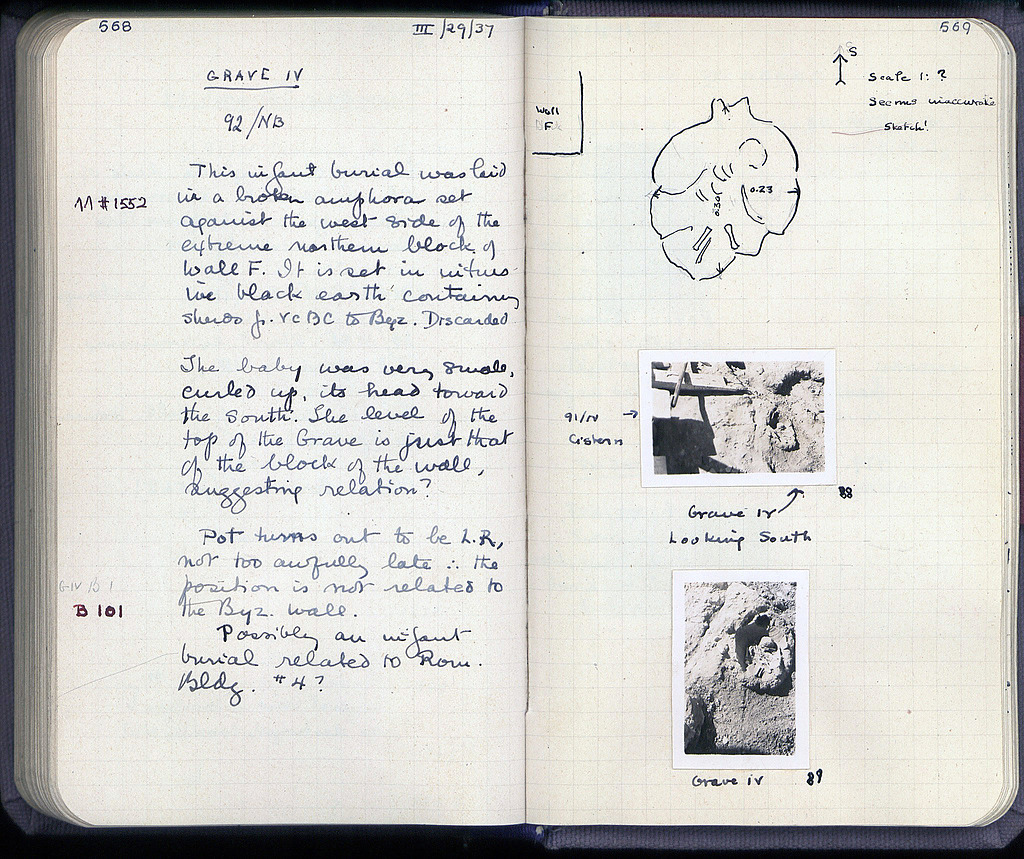 568
III/29/37
GRAVE IV
92/NB
This infant burial was laid
ΛΛ #1552
in a broken amphora set
against the west side of the
extreme northern block of
Wall F. It is set in intru-
ive black earth containing
sherds fr. Vc BC to Byz. Discarded
The baby was very small,
curled up, its head toward
the South. The level of the
top of the Grave is just that
of the block of the wall,
suggesting relation?
Pot turns out to be L.R,
not too awfully late ∴ the
G-IV /5 1
position is not related to
B 101
the Byz. wall.
Possibly an infant
burial related to Rom.
Bldg. #4?
569
S
Scale 1: ?
Seems inaccurate
Sketch!
Wall
F
0.23
0.30
91/IV →
Cistern
88
Grave IV
Looking South
Grave IV
89